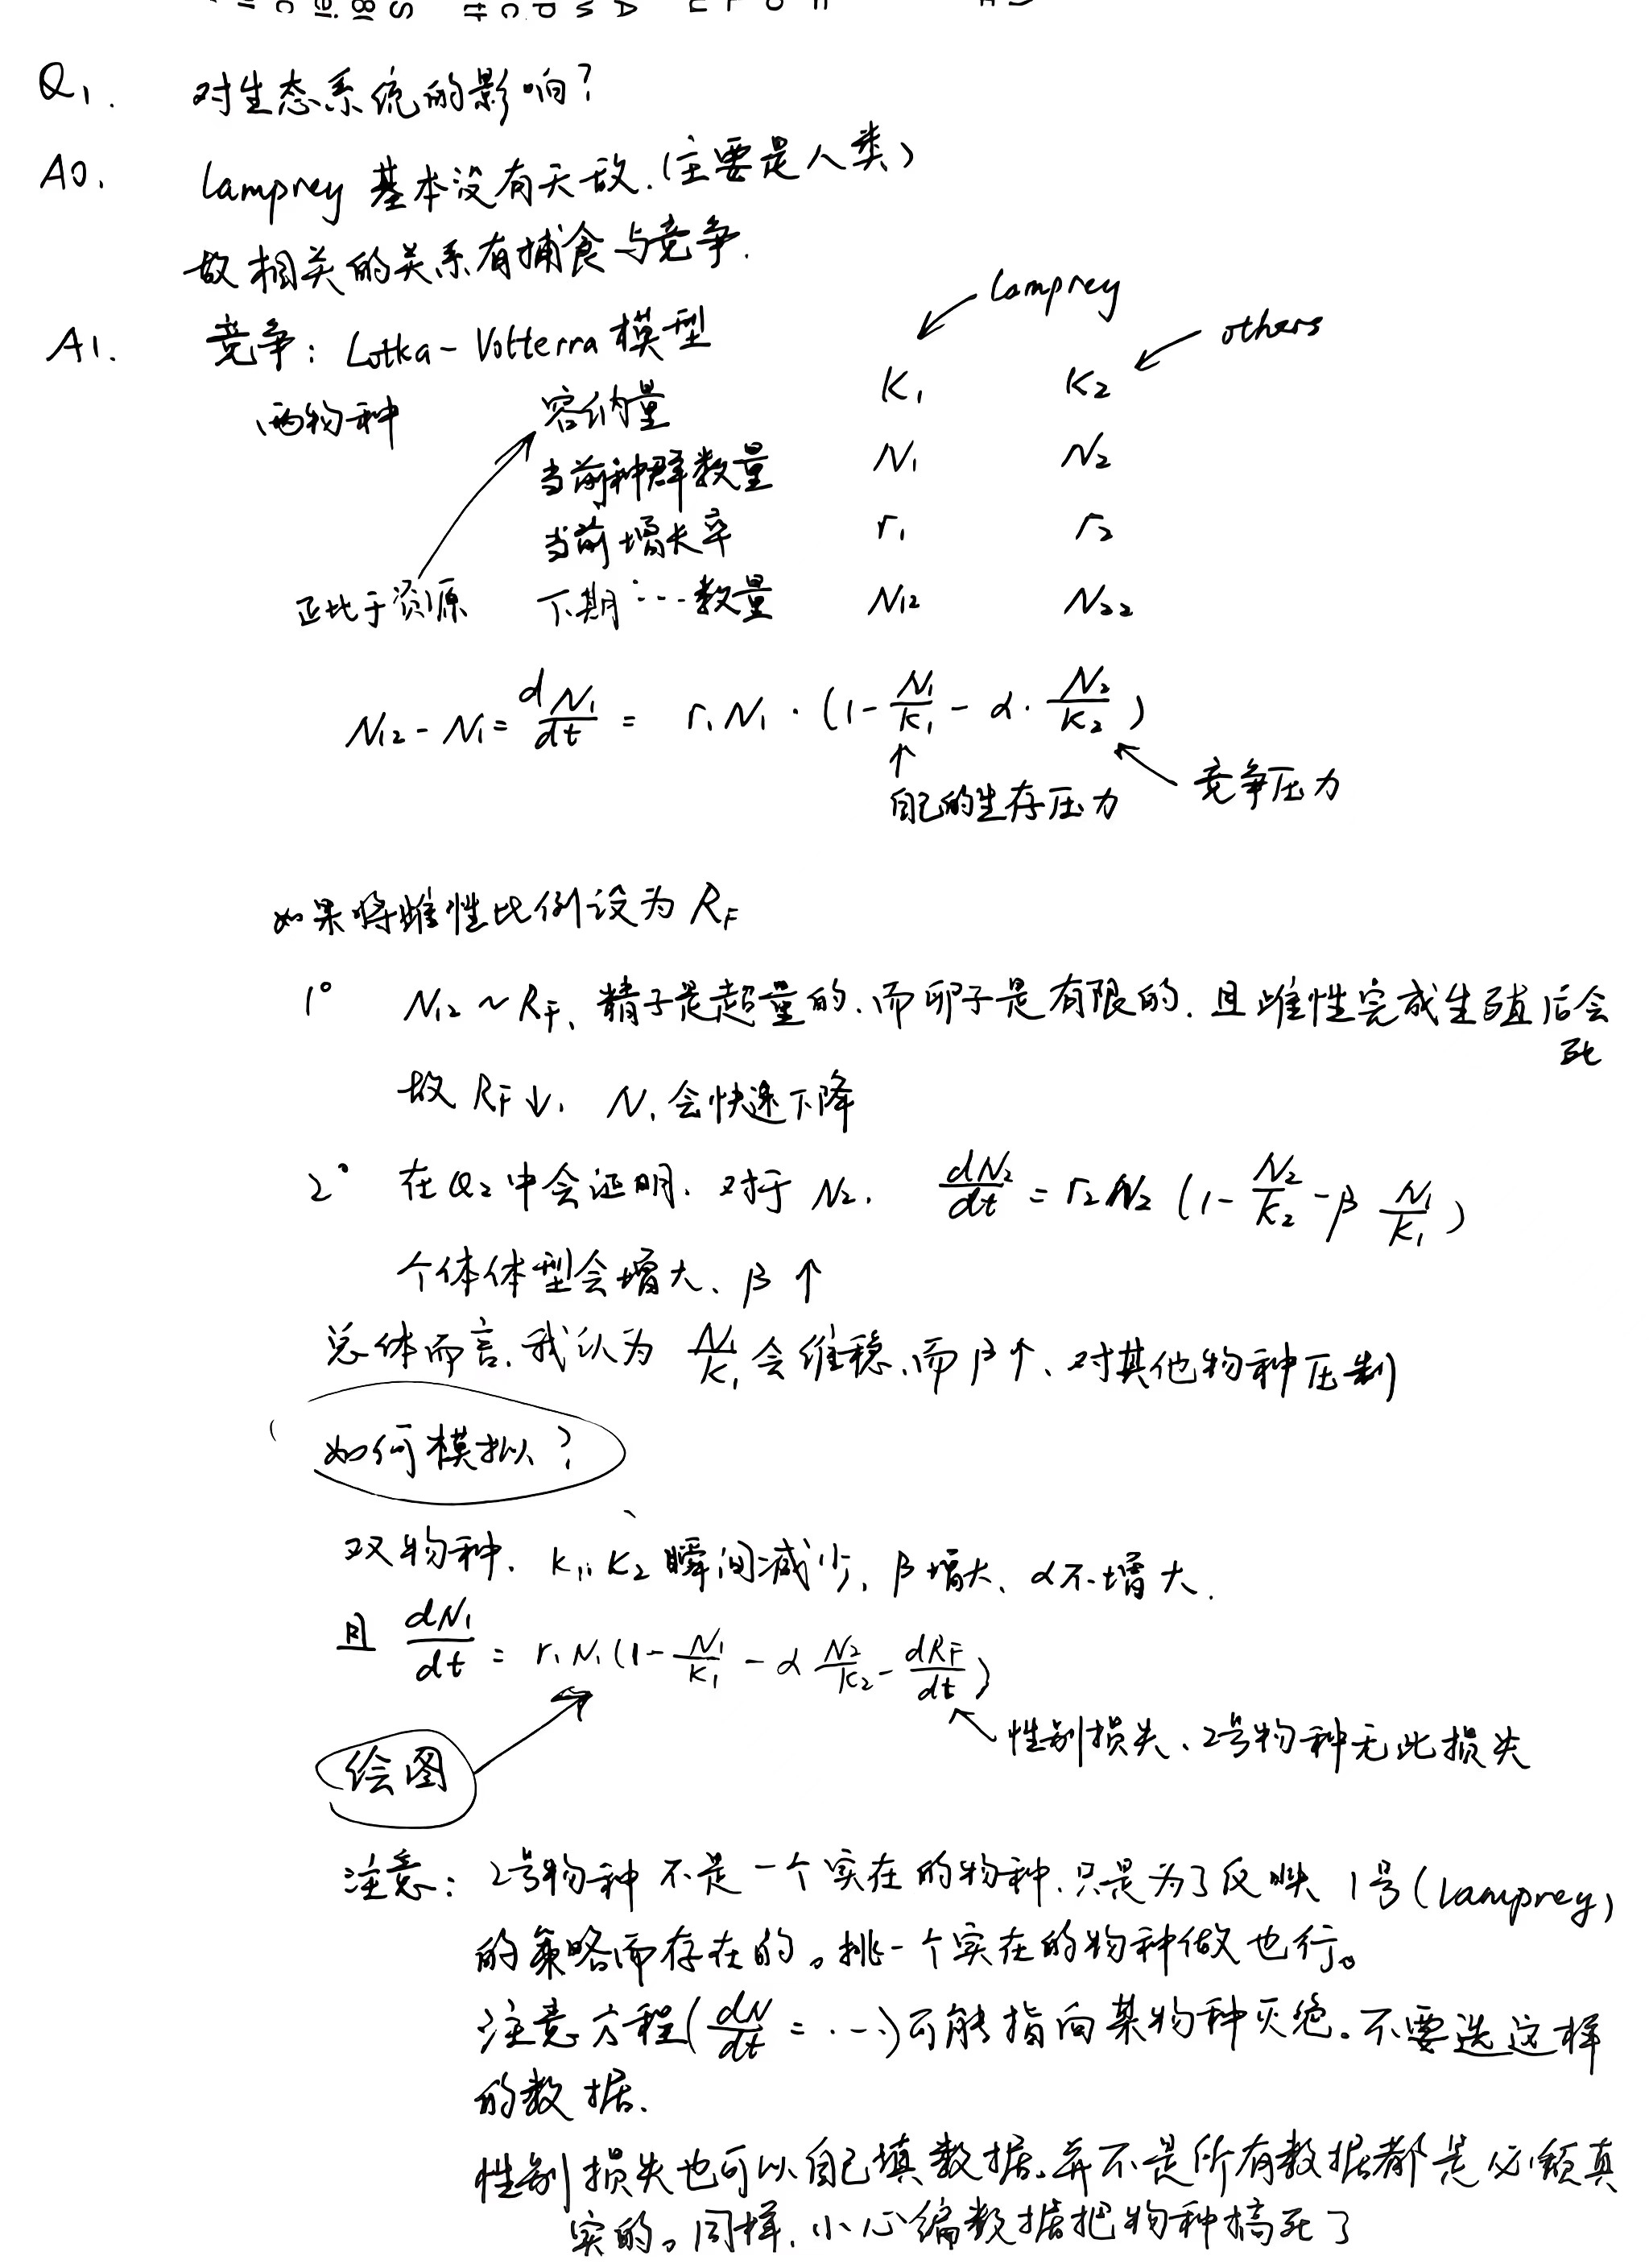 Q1. 对生态系统的影响?
A0. lamprey 基本没有天敌.(主要是人类)
故相关的关系有捕食与竞争.
A1. 竞争: Lotka-Volterra 模型
lamprey
others
两物种 容纳量 K1 K2
当前种群数量 N1 N2
当前增长率 r1 r2
正比于资源 下期…数量 N12 N22
N12 - N1 = dN1/dt = r1 N1 · (1 - N1/K1 - α · N2/K2)
自己的生存压力 竞争压力
如果将雌性比例设为 RF
1° N12 ~ RF、精子是超量的.而卵子是有限的.且雌性完成生殖后会
死
故 RF↓, N1会快速下降
2° 在Q2中会证明、对于 N2, dN2/dt = r2 N2 (1 - N2/K2 - β N1/K1)
个体体型会增大、β↑
总体而言.我认为 N1/K1 会维稳、而β↑、对其他物种压制
如何模拟?
双物种. K1, K2 瞬间减少, β增大、α不增大.
且 dN1/dt = r1 N1 (1 - N1/K1 - α N2/K2 - dRF/dt)
性别损失、2号物种无此损失
绘图
注意: 2号物种不是一个实在的物种.只是为了反映 1号(lamprey)
的策略而存在的。挑一个实在的物种做也行。
注意方程(dN/dt = ·…)可能指向某物种灭绝。不要选这样
的数据.
性别损失也可以自己填数据、并不是所有数据都是必须真
实的。同样,小心编数据把物种搞死了